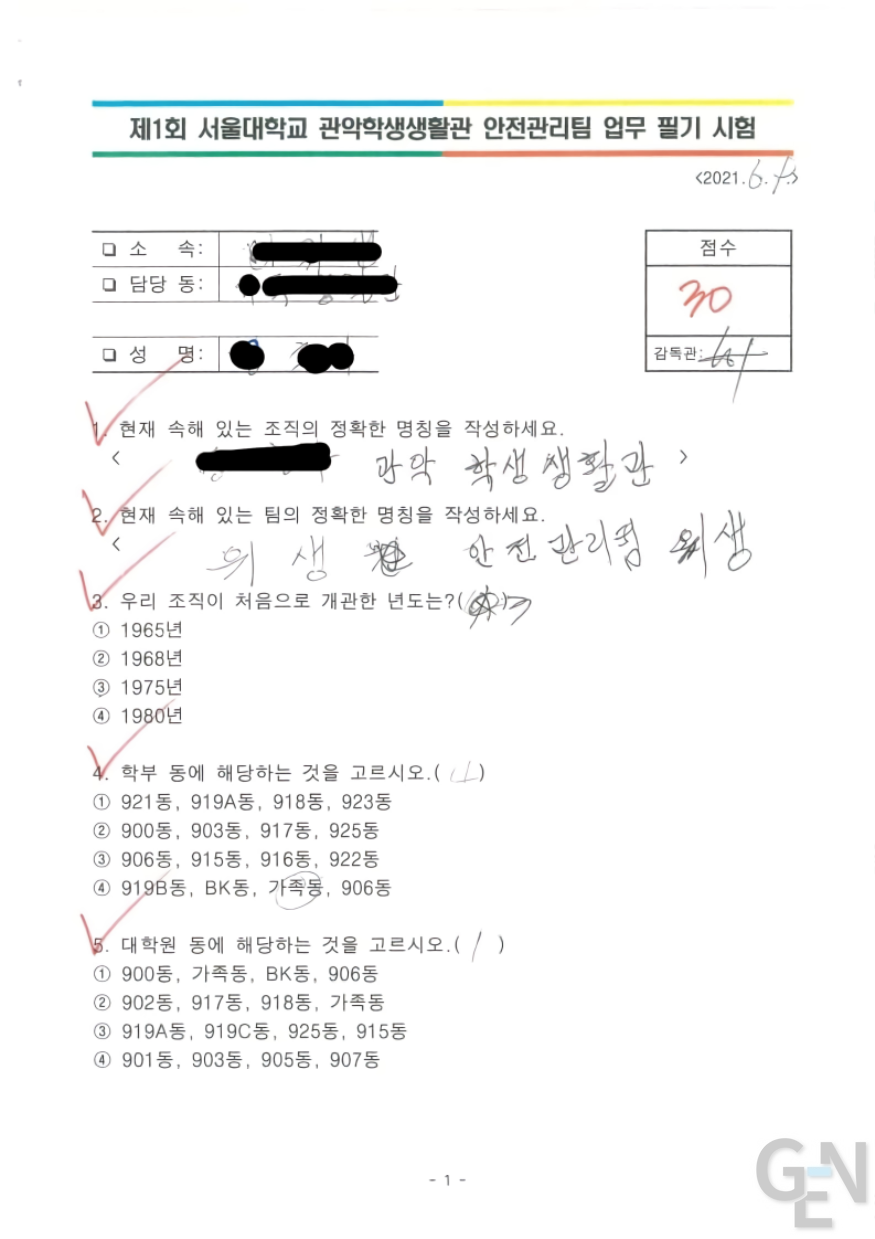 제1회 서울대학교 관악학생생활관 안전관리팀 업무 필기 시험
<2021.6.
❏ 소 속:
❏ 담당 동:
❏ 성 명:
점수
30
감독관:
1. 현재 속해 있는 조직의 정확한 명칭을 작성하세요.
< 관악 학생생활관 >
2. 현재 속해 있는 팀의 정확한 명칭을 작성하세요.
< 위생 안전관리팀 위생
3. 우리 조직이 처음으로 개관한 년도는?( )
① 1965년
② 1968년
③ 1975년
④ 1980년
4. 학부 동에 해당하는 것을 고르시오.( )
① 921동, 919A동, 918동, 923동
② 900동, 903동, 917동, 925동
③ 906동, 915동, 916동, 922동
④ 919B동, BK동, 가족동, 906동
5. 대학원 동에 해당하는 것을 고르시오.( / )
① 900동, 가족동, BK동, 906동
② 902동, 917동, 918동, 가족동
③ 919A동, 919C동, 925동, 915동
④ 901동, 903동, 905동, 907동
- 1 -
GEN